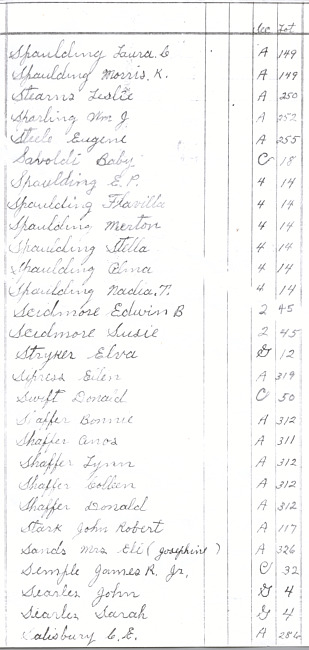 Sec Lot
Spaulding Laura C A 149
Spaulding Morris K. A 149
Stearns Leslie A 250
Sharling Wm J A 252
Steele Eugene A 255
Savoldi Baby C 18
Spaulding E. P. 4 14
Spaulding Flavilla 4 14
Spaulding Merton 4 14
Spaulding Stella 4 14
Spaulding Alma 4 14
Spaulding Nadia T. 4 14
Scidmore Edwin B 2 45
Scidmore Susie 2 45
Stryker Elva G 12
Eilen A 319
Swift Donald C 50
Shaffer Bonnie A 312
Shaffer Amos A 311
Shaffer Lynn A 312
Shaffer Colleen A 312
Shaffer Donald A 312
Stark John Robert A 117
Sands Mrs Eli (Josephine) A 326
Semple James R. Jr, C 32
Searles John G 4
Searles Sarah G 4
Salisbury C. E. A